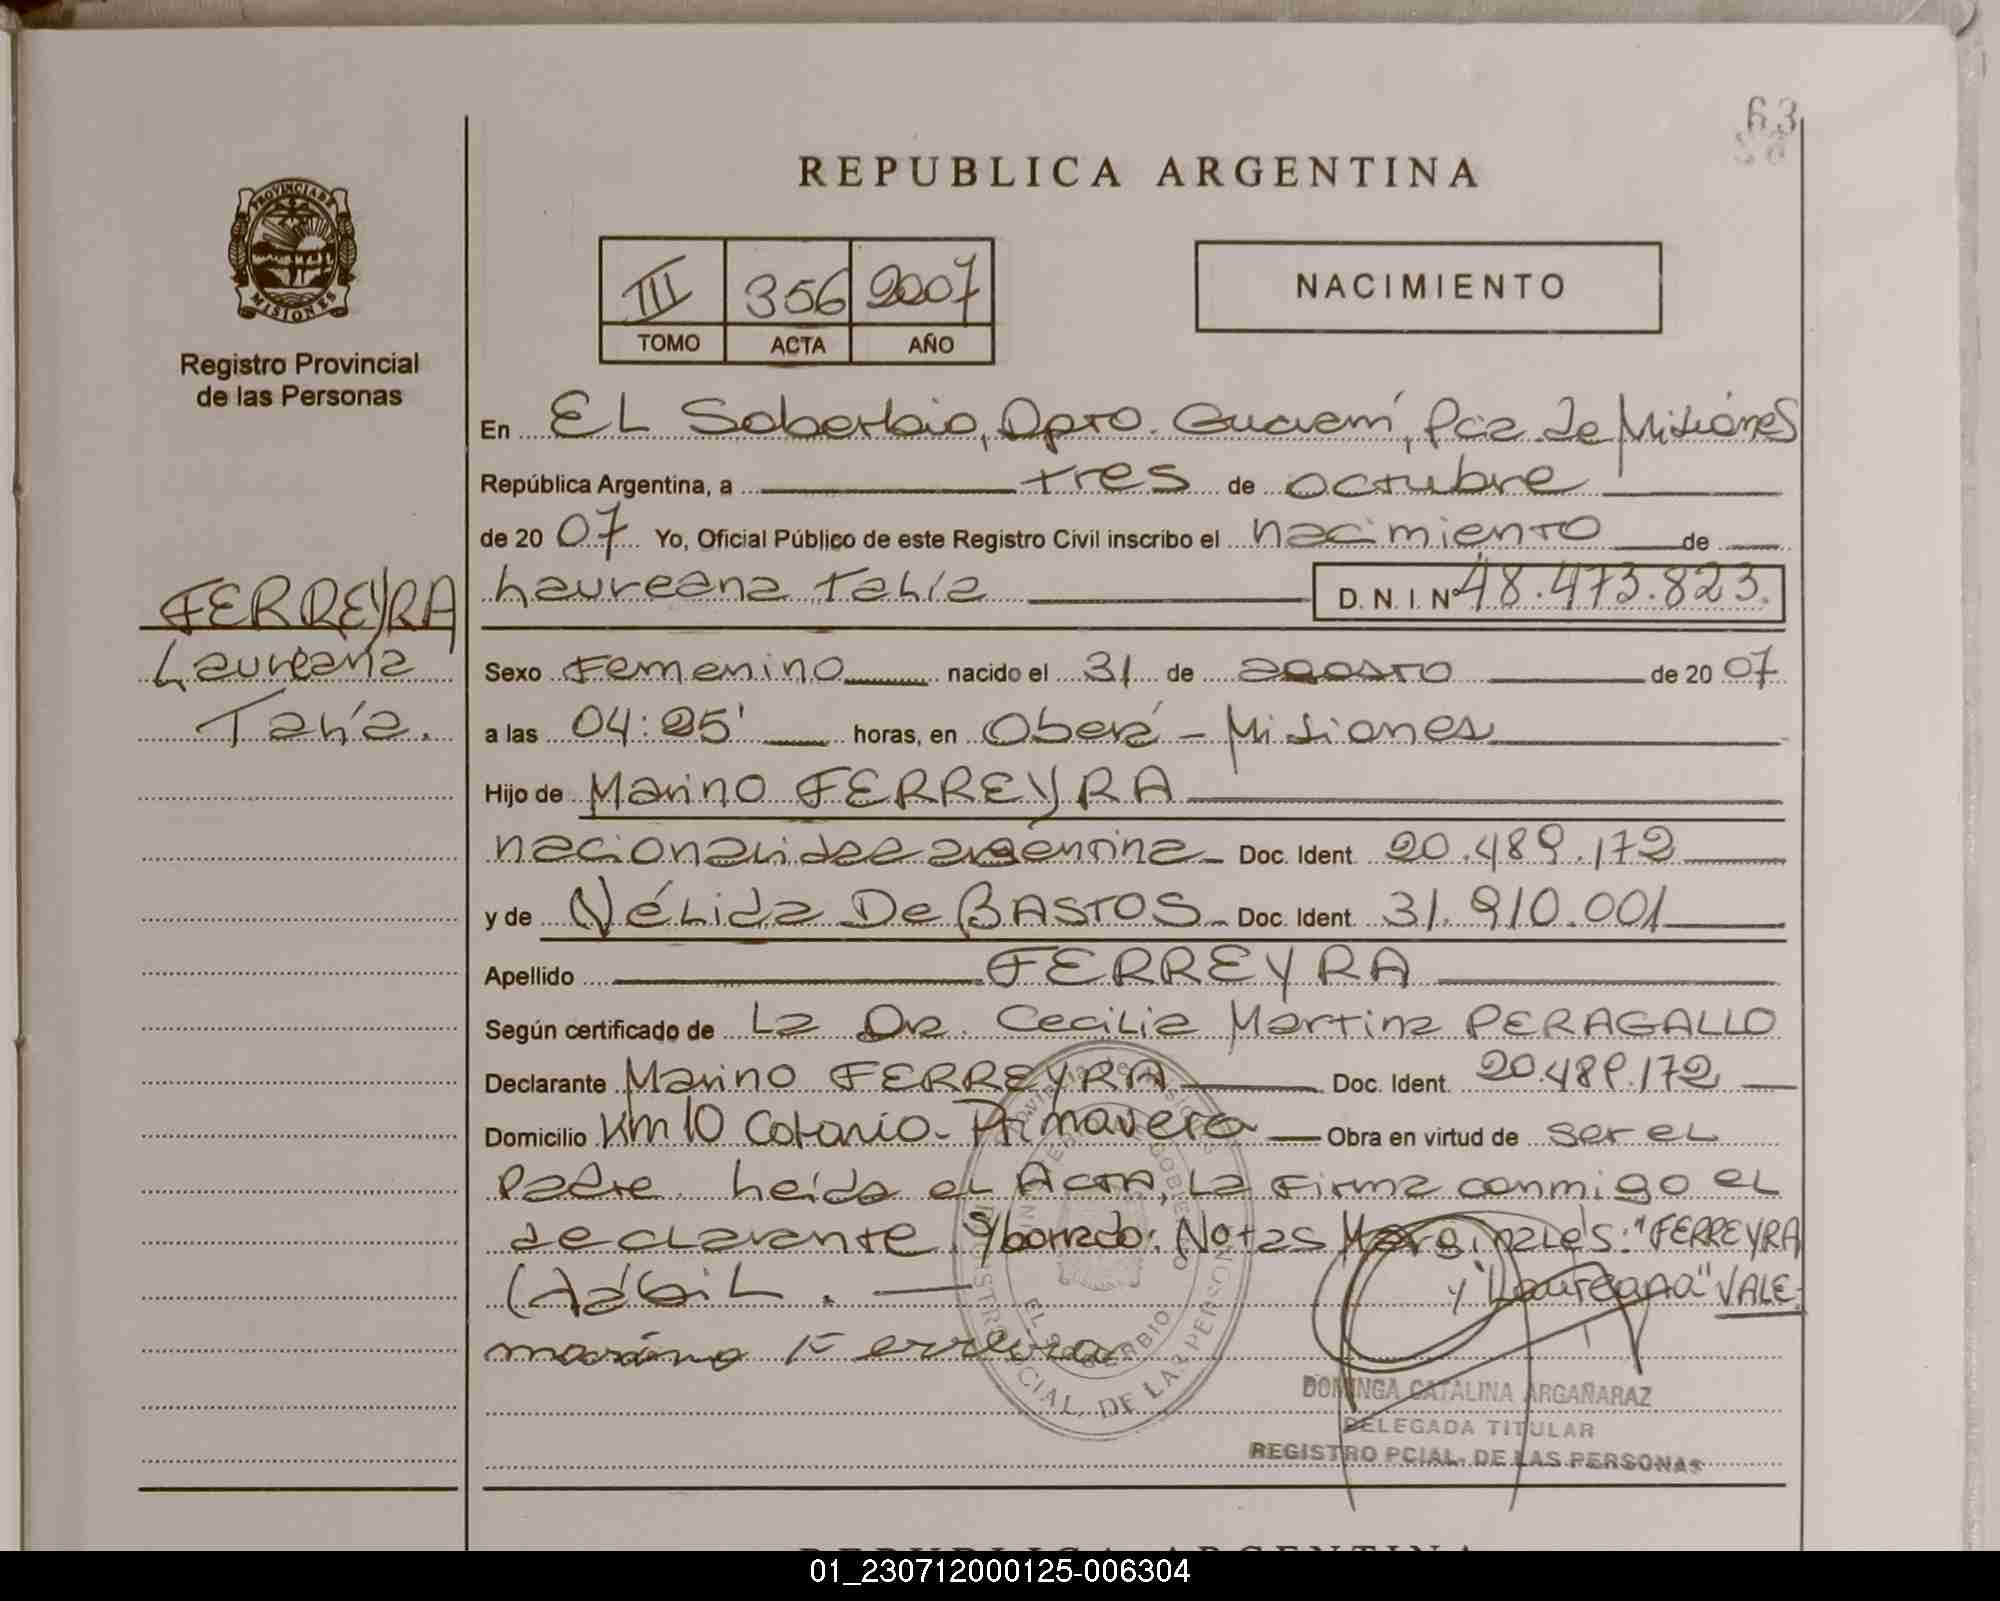 63
REPUBLICA ARGENTINA
PROVINCIA DE
MISIONES
Registro Provincial
de las Personas
III 356 2007
TOMO ACTA AÑO
NACIMIENTO
En EL Soberbio, Dpto. Guaraní, Pcia. de Misiones
República Argentina, a tres de octubre
de 2007 Yo, Oficial Público de este Registro Civil inscribo el nacimiento de
Laureana Tahía D. N. I. Nº 48.473.823.
FERREYRA
Laureana
Tahía.
Sexo Femenino nacido el 31 de agosto de 2007
a las 04:25' horas, en Oberá - Misiones
Hijo de Marino FERREYRA
nacionalidad argentina - Doc. Ident. 20.489.172
y de Nélida De BASTOS - Doc. Ident. 31.910.001
Apellido FERREYRA
Según certificado de La Dra. Cecilia Martina PERAGALLO
Declarante Marino FERREYRA Doc. Ident. 20.489.172
Domicilio Km 10 Colonia - Primavera Obra en virtud de ser el
Padre. Leída el Acta, La firma conmigo el
declarante. S/borrado: Notas Marginales: "FERREYRA
y "Laureana" VALE.
marino Ferreira
DOMINGA CATALINA ARGAÑARAZ
DELEGADA TITULAR
REGISTRO PCIAL. DE LAS PERSONAS
REPUBLICA ARGENTINA
01_230712000125-006304